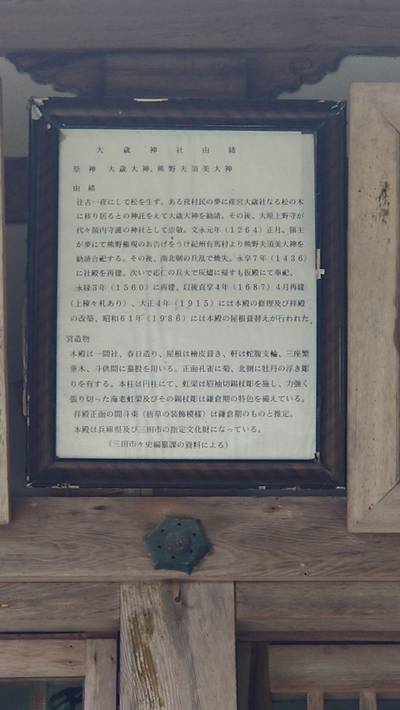 大歳神社由緒
祭神 大歳大神、熊野夫須美大神
由緒
往古一夜にして松を生ず。ある夜村民の夢に産宮大歳社なる松の木
に移り居るとの神託をえて大歳神を勧請。その後、大原上野守が
代々領内守護の神社として崇敬。文永元年(1264)正月、領主
が夢にて熊野権現のお告げをうけ紀州有馬村より熊野夫須美大神を
勧請合祀する。その後、南北朝の兵乱で焼失。永享7年(1436)
に社殿を再建。次いで応仁の兵火で灰燼に帰すも仮殿にて奉祀。
永禄3年(1560)に再建。以後貞享4年(1687)4月再建
(上棟々札あり)、大正4年(1915)には本殿の修理及び拝殿
の改築、昭和61年(1986)には本殿の屋根葺替えが行われた
宮造物
本殿は一間社、春日造り、屋根は檜皮葺き、軒は蛇腹支輪、三座繁
垂木、斗供間に蟇股を用いる。正面孔雀に菊、北側に牡丹の浮き彫
りを有する。本柱は円柱にて、虹梁は眉袖切錫杖彫を施し、力強く
張り切った海老虹梁及びその錫杖彫は鎌倉期の特色を備えている。
拝殿正面の間斗束(唐草の装飾模様)は鎌倉期のものと推定。
本殿は兵庫県及び三田市の指定文化財になっている。
(三田市々史編纂課の資料による)